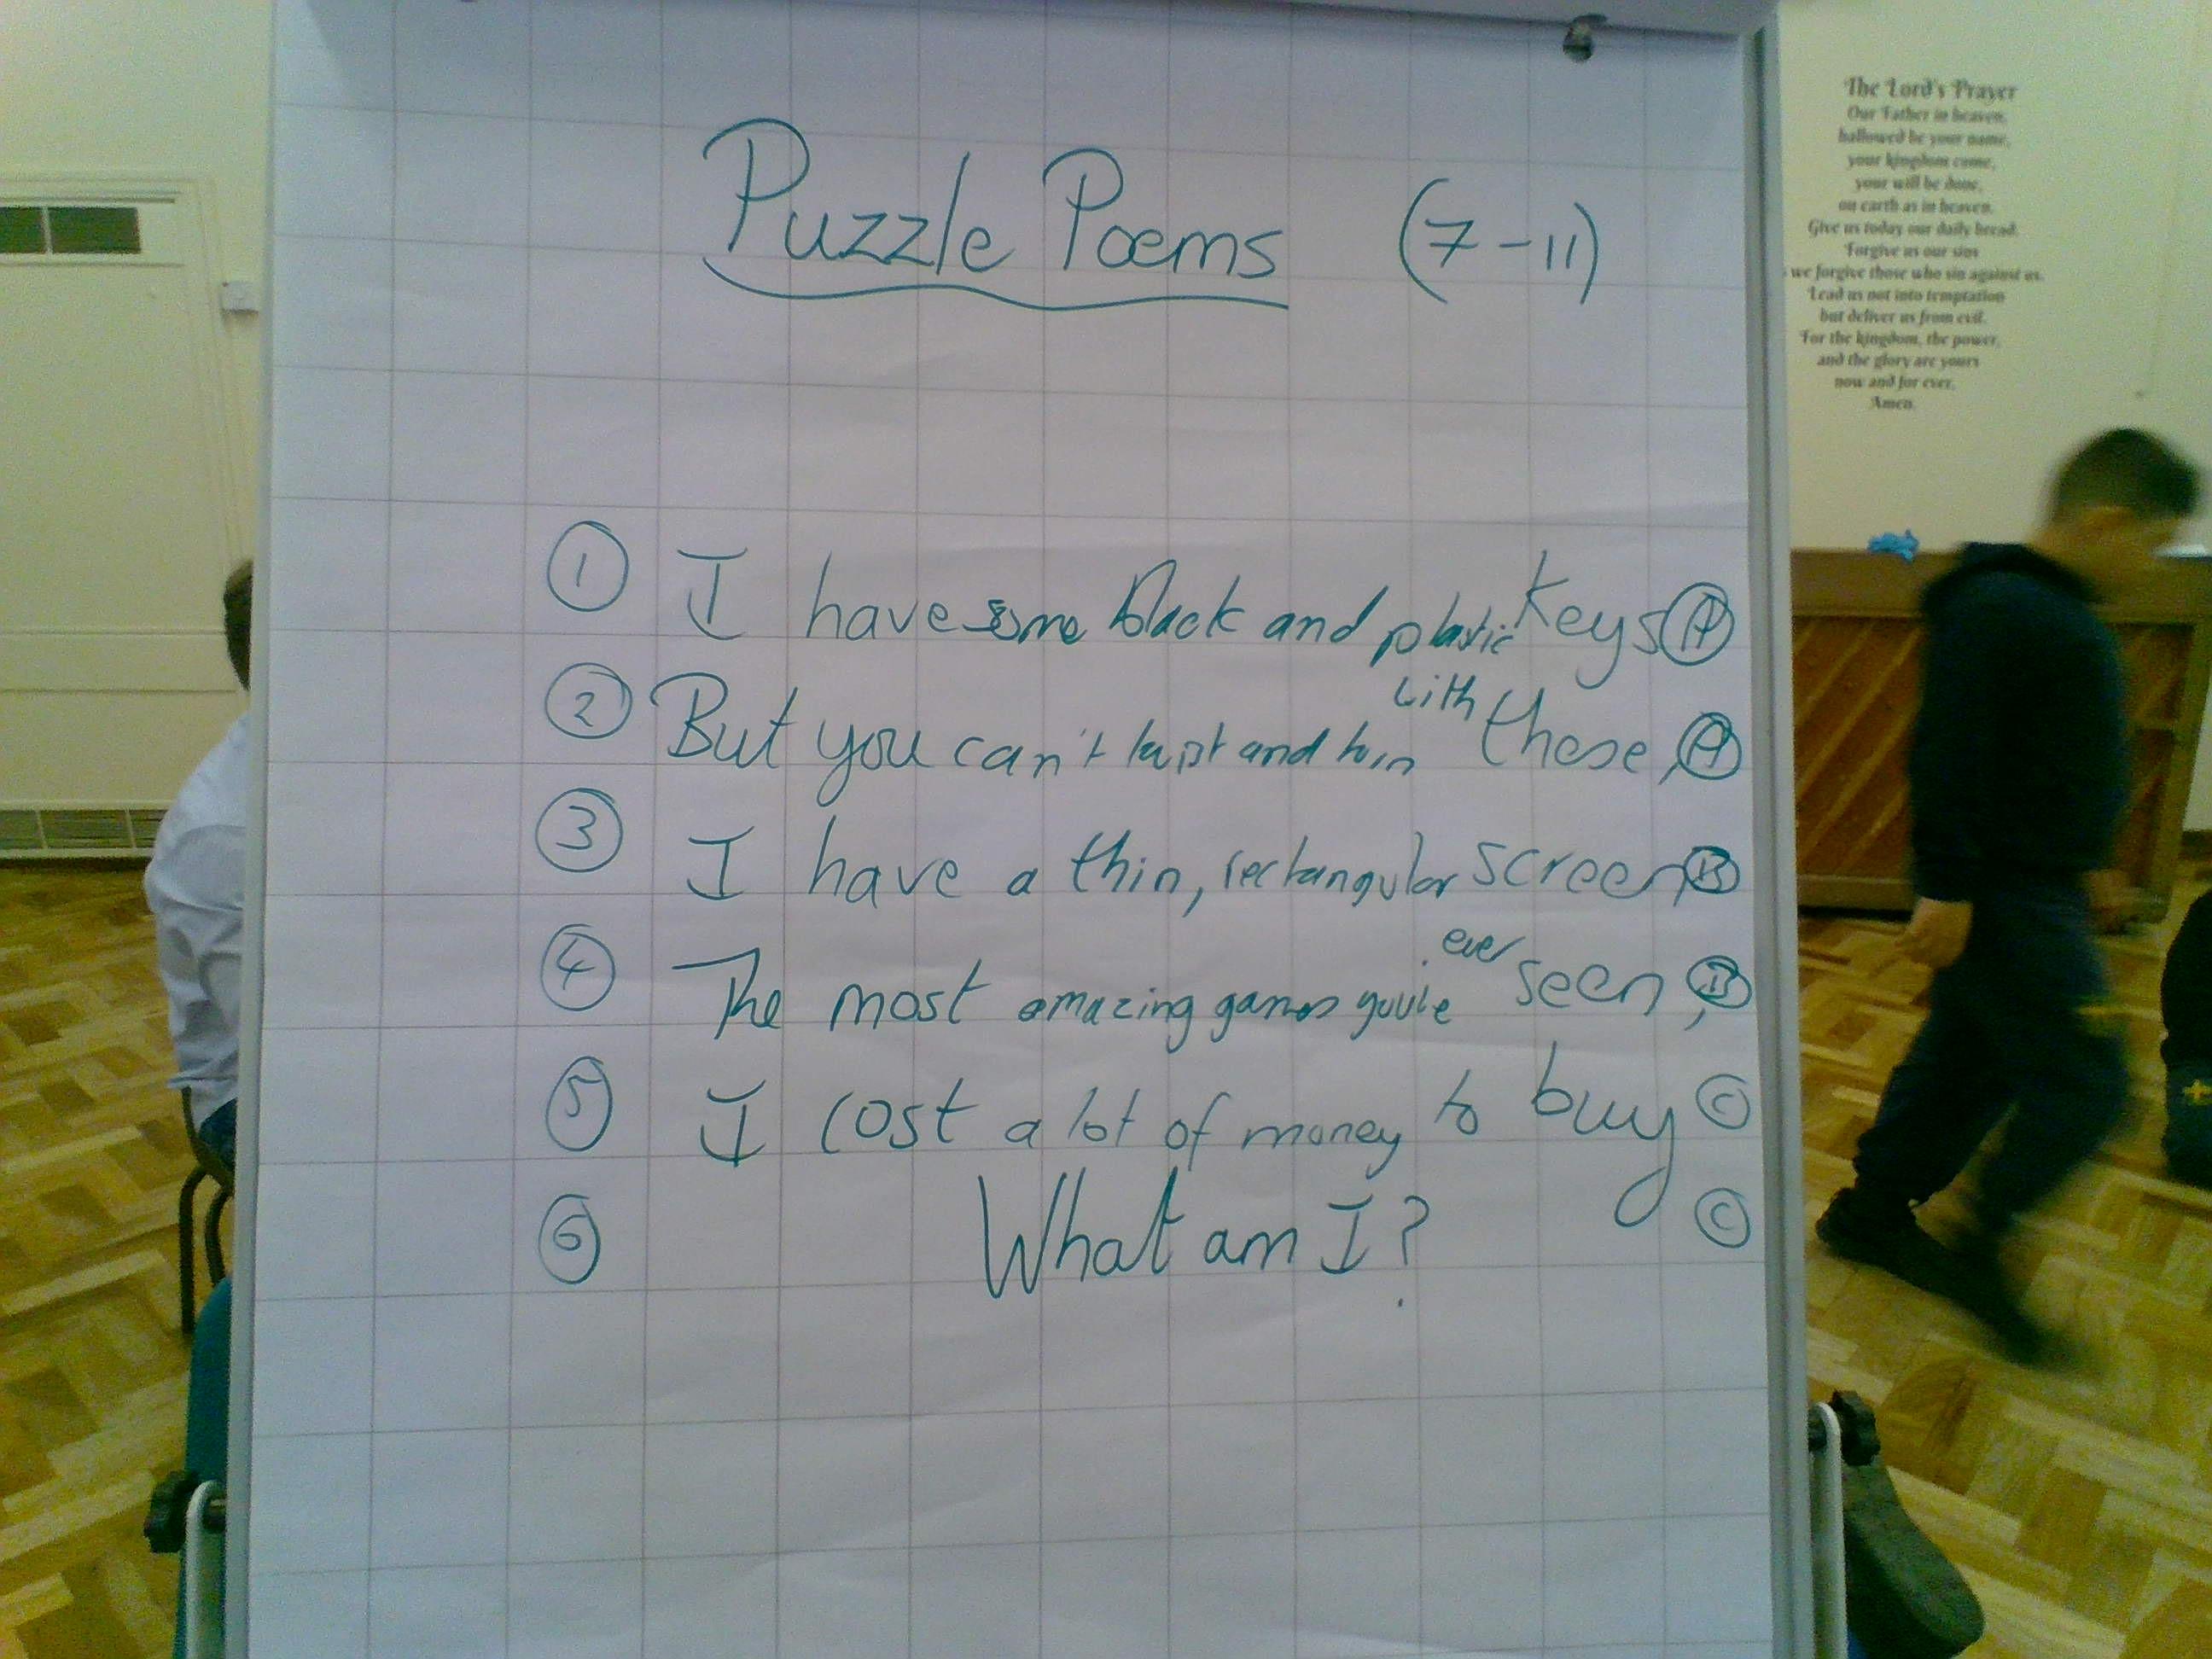 Puzzle Poems (7-11)
① I have some black and plastic keys Ⓐ
② But you can't twist and turn with these, Ⓐ
③ I have a thin, rectangular screen Ⓑ
④ The most amazing games you've ever seen, Ⓑ
⑤ I cost a lot of money to buy Ⓒ
⑥ What am I? Ⓒ
The Lord's Prayer
Our Father in heaven,
hallowed be your name,
your kingdom come,
your will be done,
on earth as in heaven.
Give us today our daily bread.
Forgive us our sins
we forgive those who sin against us.
Lead us not into temptation
but deliver us from evil.
For the kingdom, the power,
and the glory are yours
now and for ever.
Amen.